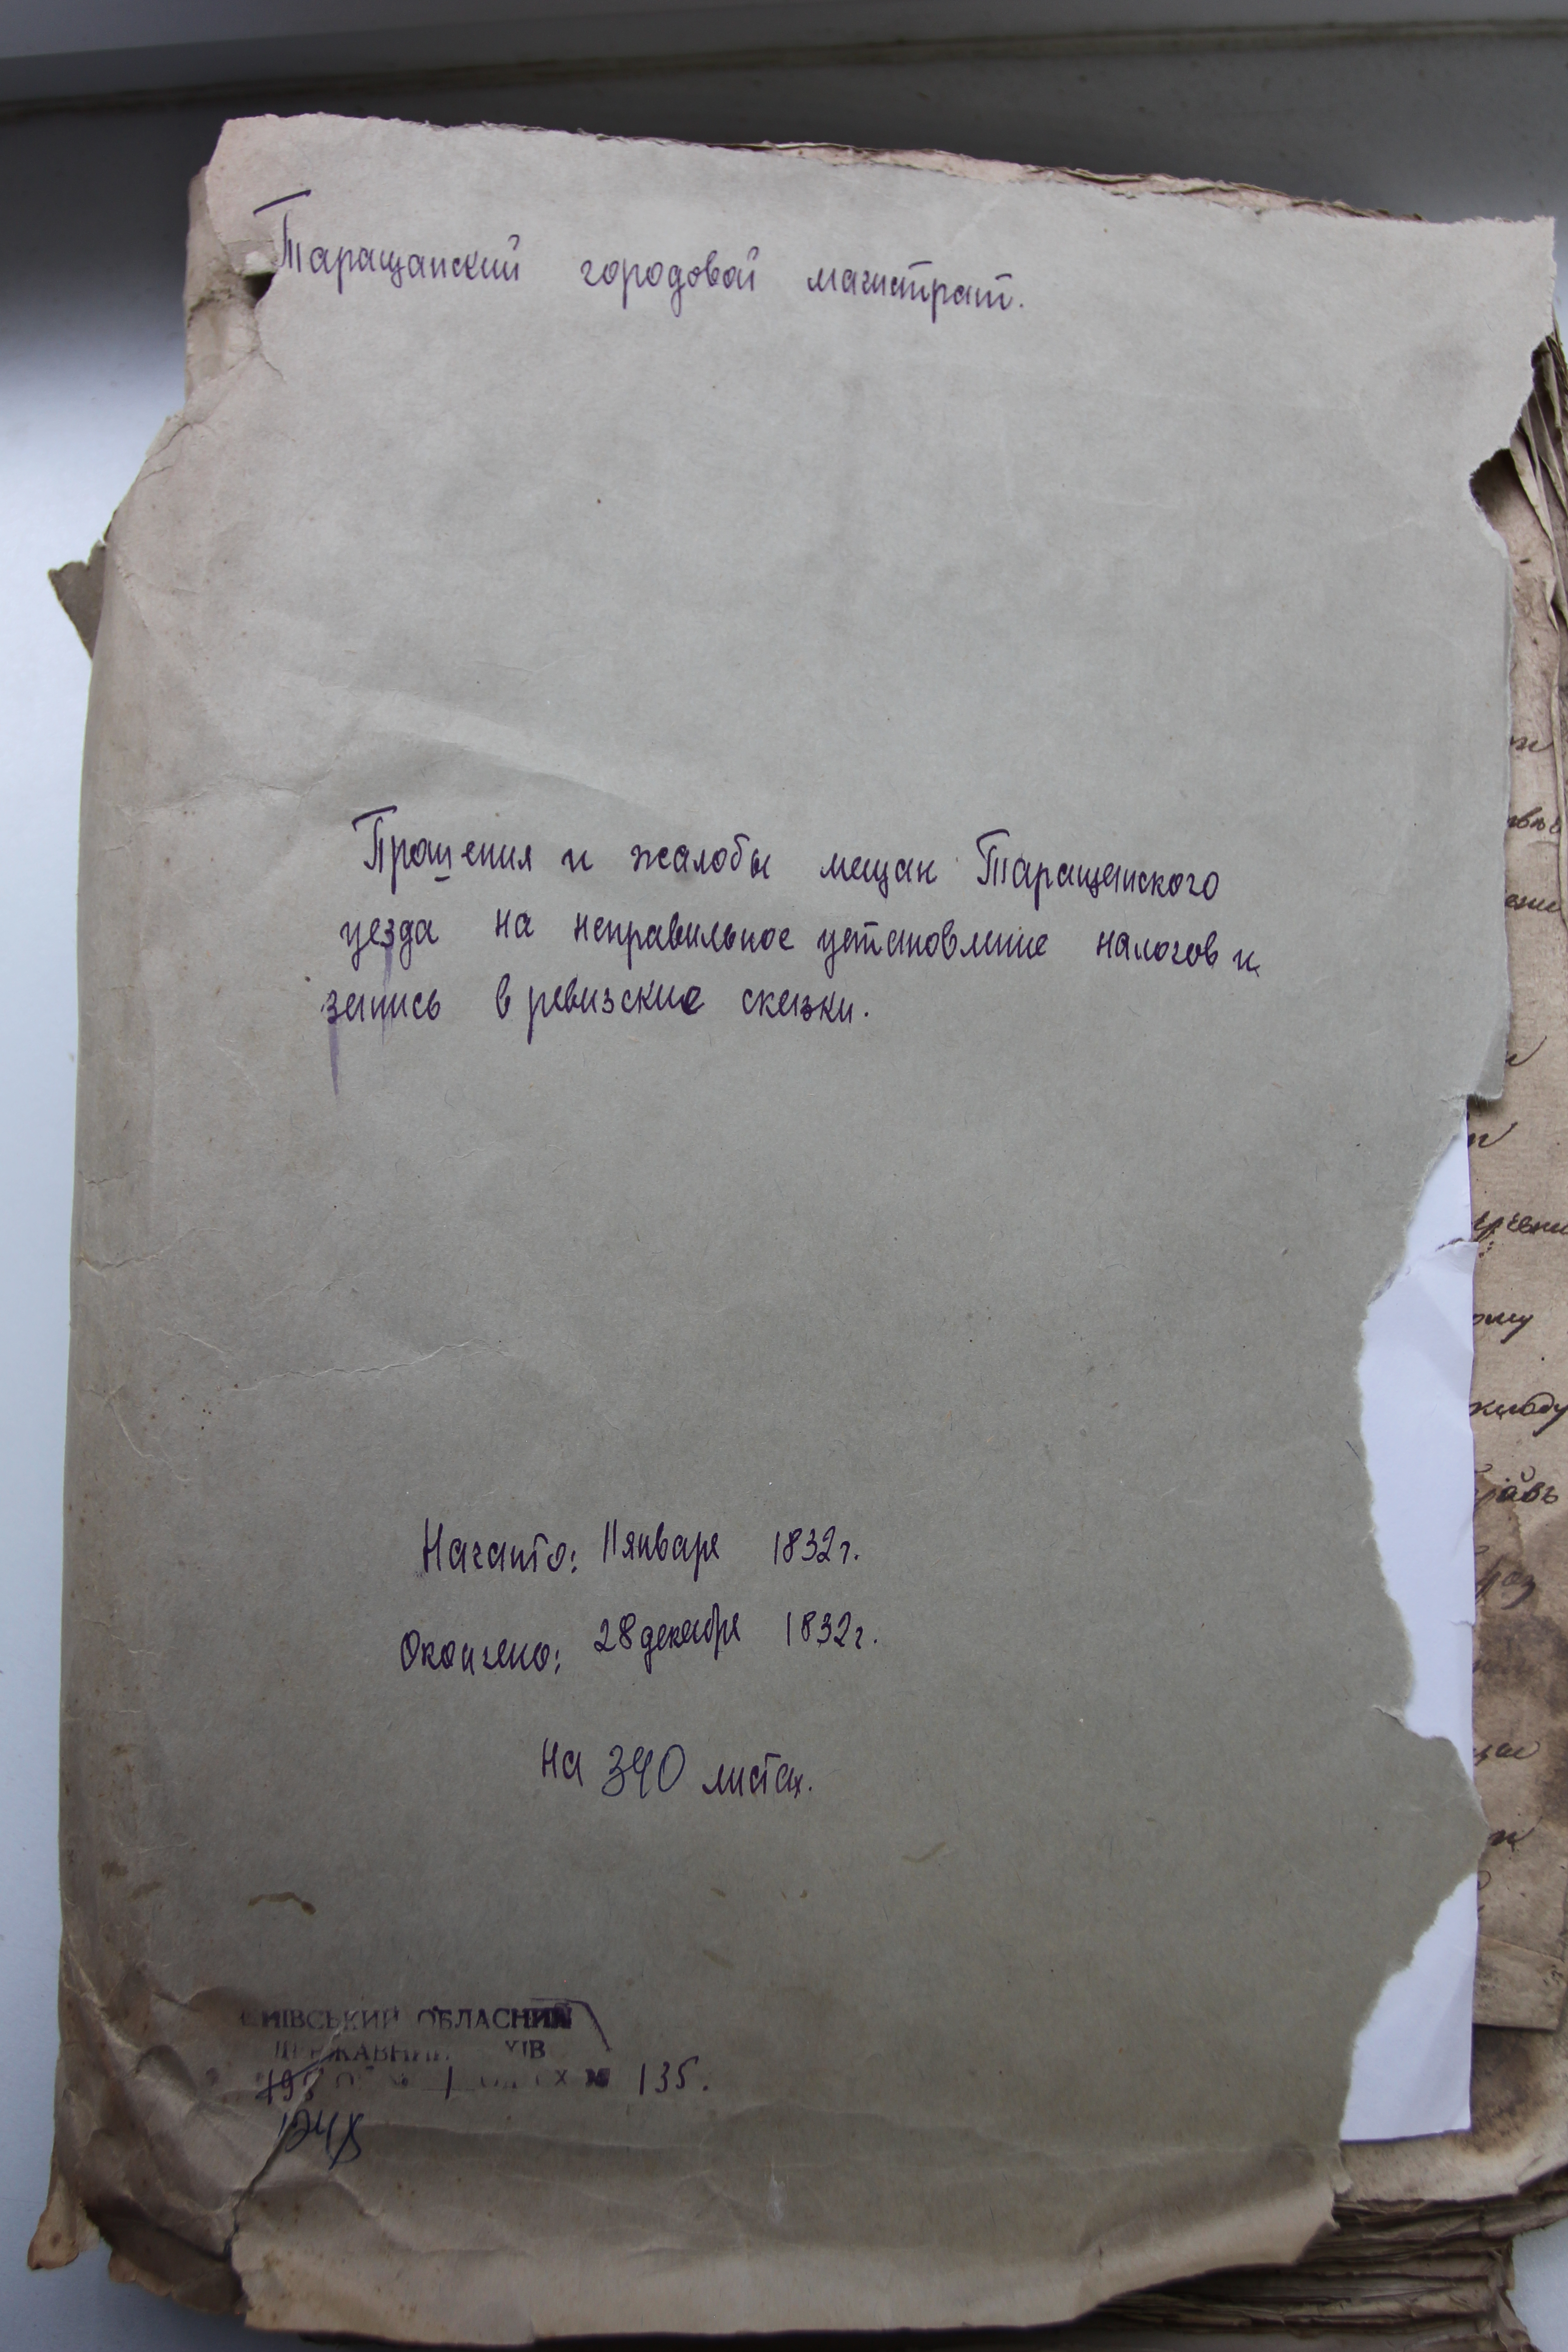 Таращанский городовой магистрат.
Прошения и жалобы мещан Таращанского
уезда на неправильное установление налогов и
запись в ревизские сказки.
Начато: 11 января 1832 г.
Окончено: 28 декабря 1832 г.
На 340 листах.
КИЇВСЬКИЙ ОБЛАСНИЙ
ДЕРЖАВНИЙ
1 135.